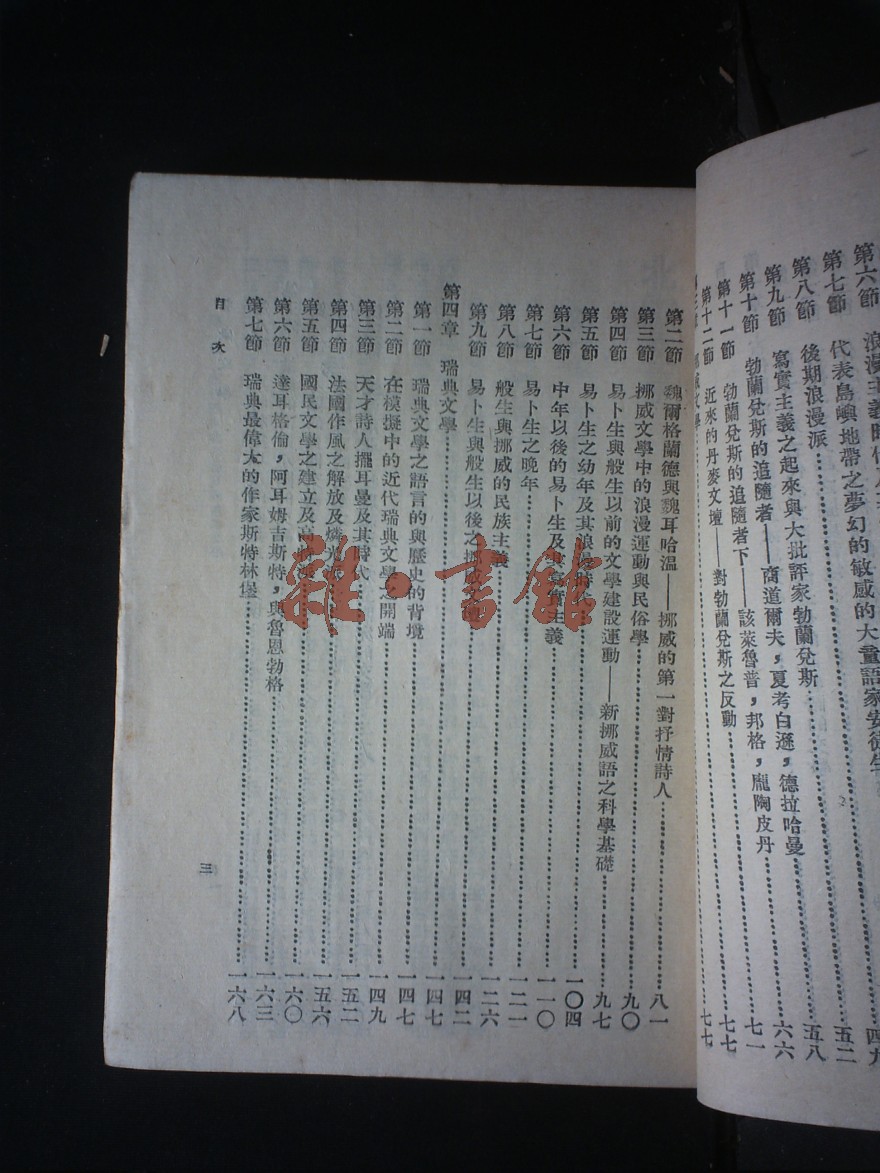 第六節 浪漫主義時代 四九
第七節 代表島嶼地帶之夢幻的敏感的大童話家安徒生 五二
第八節 後期浪漫派 五八
第九節 寫實主義之起來與大批評家勃蘭兌斯 六六
第十節 勃蘭兌斯的追隨者——商道爾夫,夏考白遜,德拉哈曼 七一
第十一節 勃蘭兌斯的追隨者下——該萊魯普,邦格,龐陶皮丹 七七
第十二節 近來的丹麥文壇——對勃蘭兌斯之反動 七七
第二節 魏爾格蘭德與魏耳哈溫——挪威的第一對抒情詩人 八一
第三節 挪威文學中的浪漫運動與民俗學 九〇
第四節 易卜生與般生以前的文學建設運動——新挪威語之科學基礎 九七
第五節 易卜生之幼年及其浪漫時代 一〇四
第六節 中年以後的易卜生及其寫實主義 一一〇
第七節 易卜生之晚年 一二一
第八節 般生與挪威的民族主義 一二六
第九節 易卜生與般生以後之挪威文 一四二
第四章 瑞典文學 一四七
第一節 瑞典文學之語言的與歷史的背境 一四七
第二節 在模擬中的近代瑞典文學之開端 一四九
第三節 天才詩人擺耳曼及其時代 一五二
第四節 法國作風之解放及燐光派 一五六
第五節 國民文學之建立及高特派 一六〇
第六節 達耳格倫,阿耳姆吉斯特,與魯恩勃格 一六三
第七節 瑞典最偉大的作家斯特林堡 一六八
目次
三
雜·書館